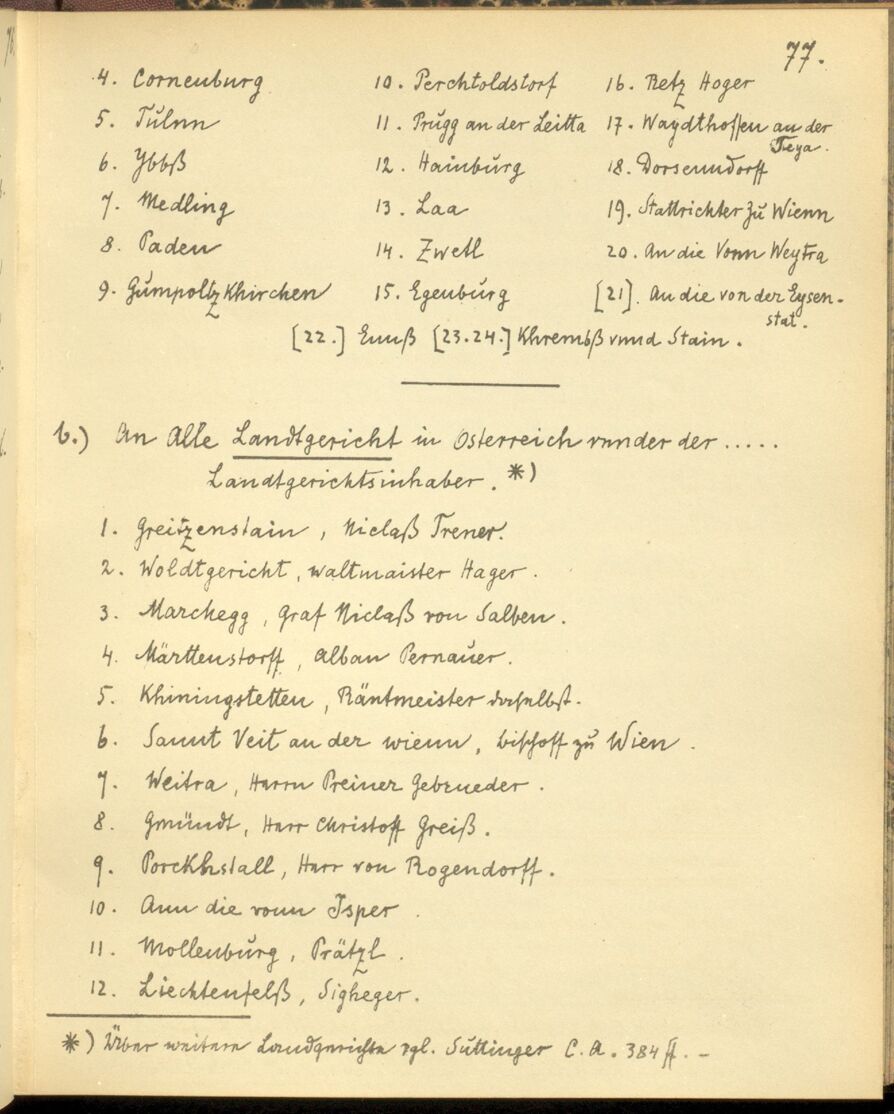 77.
4. Corneuburg
5. Tulnn
6. Ybbß
7. Medling
8. Paden
9. Gumpoltzkhirchen
10. Perchtoldstorf
11. Prugg an der Leitta
12. Hainburg
13. Laa
14. Zwetl
15. Egenburg
16. Retz Hoger
17. Waydthoffen an der
Teya.
18. Dorsenndorff
19. Stattrichter zu Wienn
20. An die Vonn Weytra
[21]. An die von der Eysen-
stat.
[22.] Ennß [23.24.] Khrembß vnnd Stain.
b.) An Alle Landtgericht in Osterreich vnnder der .....
Landtgerichtsinhaber. *)
1. Greitzenstain, Niclaß Trener.
2. Woldtgericht, waltmaister Hager.
3. Marchegg, Graf Niclaß von Salben.
4. Märttenstorff, Alban Pernauer.
5. Khiningstetten, Räntmeister daselbst.
6. Sannt Veit an der wienn, bischoff zu Wien.
7. Weitra, Herrn Preiner Gebrueder.
8. Gmündt, Herr Christoff Greiß.
9. Porckhstall, Herr von Rogendorff.
10. Ann die vonn Isper.
11. Mollenburg, Prätzl.
12. Liechtenfelß, Sigheger.
*) Über weitere Landgerichte vgl. Suttinger C.A. 384 ff. –